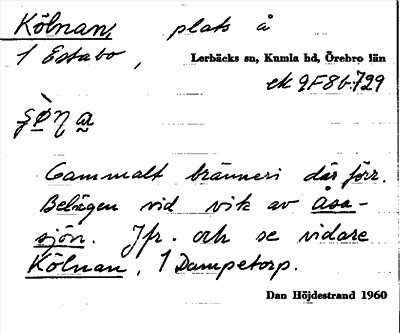 Kölnan, plats å
1 Estabo, Lerbäcks sn, Kumla hd, Örebro län
ek 9F8b 729
Gammalt bränneri där förr.
Belägen vid vik av Åsa-
sjön. Jfr. och se vidare
Kölnan, 1 Dampetorp.
Dan Höjdestrand 1960